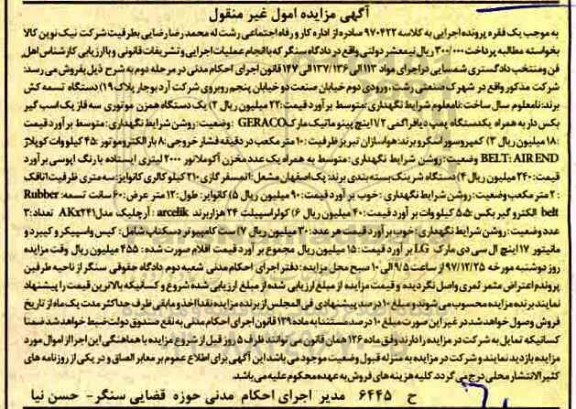 آگهی مزایده اموال غیر منقول
به موجب یک فقره پرونده اجرایی به کلاسه ۹۷۰۴۲۲ صادره از اداره کار و رفاه اجتماعی رشت له محمد رضا رضایی بطرفیت شرکت نیک نوین کالا
بخواسته مطالبه پرداخت ۳۰۰/۰۰۰ ریال نیمعشر دولتی واقع در دادگاه سنگر که با انجام عملیات اجرایی و تشریفات قانونی و با ارزیابی کارشناس اهل
فن و منتخب دادگستری شمسایی در اجرای مواد ۱۱۳ الی ۱۳۶ / ۱۳۷ الی ۱۴۷ قانون اجرای احکام مدنی در مرحله دوم به شرح ذیل بفروش می رسد:
شرکت مذکور واقع در شهرک صنعتی رشت ، ورودی دوم خیابان صنعت دو خیابان پنجم روبروی شرکت آرد بوجار پلاک ۱۹) دستگاه تسمه کش
برند: نامعلوم سال ساخت: نامعلوم شرایط نگهداری: متوسط بر آورد قیمت: ۲۲ میلیون ریال ۲) یک دستگاه همزن موتوری سه فاز یک اسب گیر
بکس دار به همراه یکدستگاه پمپ دیافراگمی ۱/۲ اینچ پینوماتیک مارک GERACO وضعیت: روشن شرایط نگهداری: متوسط بر آورد قیمت
:۱۸ میلیون ریال ۳) کمپروسور اسکرو برند: هواسازان تبریز ظرفیت: ۱۰ متر مکعب در دقیقه فشار خروجی: ۸ بار الکتروموتور: ۴۵ کیلووات کوپلاژ
BELT: AIREND وضعیت: روشن شرایط نگهداری: متوسط به همراه یک عدد مخزن آکومولاتور ۲۰۰۰ لیتری ایستاده با رنگ اپوسی بر آورد
قیمت: ۲۴۰ میلیون ریال ۴) دستگاه شرینک بسته بندی برند: پک اصفهان مشعل: اتمسفر گازی ۲۱۰ کیلو کالری کانوایر: سه متری ظرفیت اتاقک
: ۲ متر مکعب وضعیت: روشن شرایط نگهداری: خوب بر آورد قیمت: ۹۰ میلیون ریال ۵) کانوایر: طول: ۱۲ متر عرض: ۶۰ سانت تسمه: Rubber
belt الکترو گیر بکس: ۵.۵ کیلو وات بر آورد قیمت: ۴۰ میلیون ریال ۶) کولر اسپیلت ۲۴ هزار برند arcelik : آرچلیک مدل AKX۲۴۱ تعداد: ۳
عدد وضعیت: روشن شرایط نگهداری: خوب بر آورد قیمت هر عدد: ۳۰ میلیون ریال ۷) ست کامپیوتر دسکتاپ شامل: کیس و اسپیکر و کیبرد و
مانیتور ۱۷ اینچ ال سی دی مارک LG بر آورد قیمت: ۱۵ میلیون ریال مجموع بر آورد قیمت اقلام صورت شده: ۴۵۵ میلیون ریال وقت مزایده
روز دوشنبه مورخه ۹۷/۱۲/۲۵ از ساعت ۹/۵ الی ۱۰ صبح محل مزایده: دفتر اجرای احکام مدنی شعبه دوم دادگاه حقوقی سنگر از ناحیه طرفین
پرونده اعتراض مثمر ثمری واصل نگردیده و قیمت مزایده از مبلغ ارزیابی شده از مبلغ ارزیابی شده شروع و کسانیکه بالاترین قیمت را پیشنهاد
نمایند برنده مزایده محسوب می شوند و مبلغ ۱۰ درصد پیشنهادی فی المجلس از برنده مزایده نقدا اخذ و مابقی ظرف حداکثر مدت یک ماه از تاریخ
فروش وصول خواهد شد در غیر این صورت مبلغ ۱۰ درصد مستندا به ماده ۱۳۹ قانون اجرای احکام مدنی به نفع صندوق دولت ضبط خواهد شد ضمنا
کسانیکه تمایل به شرکت در مزایده را دارند وفق ماده ۱۲۶ همان قانون می توانند ظرف ۵ روز قبل از شروع مزایده با هماهنگی این اجرا از اموال مورد
مزایده بازدید نمایند و شرکت در مزایده به منزله قبول وضعیت موجود می باشد این آگهی برای اطلاع عموم بر معابر الصاق و در یکی از روزنامه های
کثیرالانتشار محلی درج می گردد. کلیه هزینه های فروش به عهده محکوم علیه می باشد.
ح ۶۴۴۵ مدیر اجرای احکام مدنی حوزه قضایی سنگر- حسن نیا